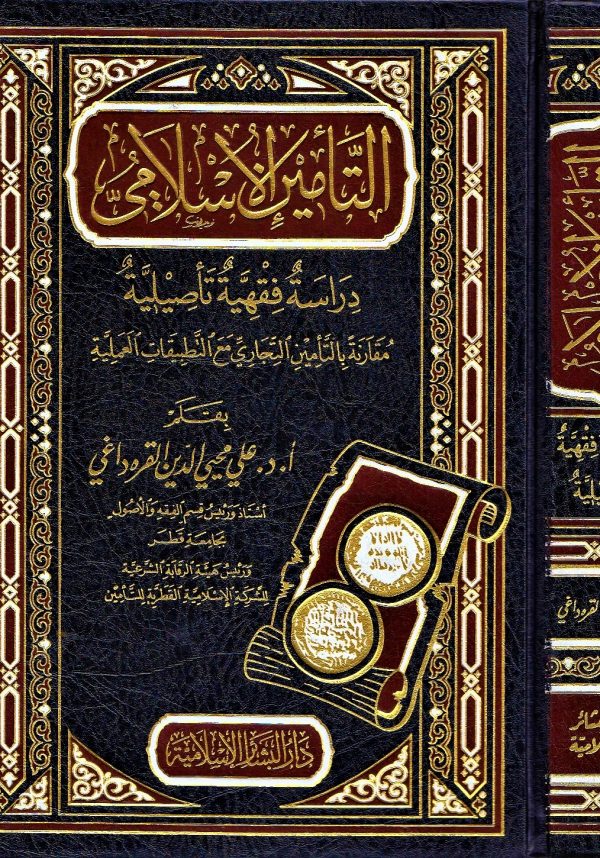 التَّأمِينُ الإِسْلَامِيُّ
دِرَاسَةٌ فِقْهِيَّةٌ تَأْصِيْلِيَّةٌ
مُقَارَنَةٌ بِالتَّأمِيْنِ التِّجَارِيِّ مَعَ التَّطْبِيقَاتِ العَمَلِيَّةِ
بِقَلَمِ
أ. د. علي محيي الدين القره داغي
أستاذ ورئيس قسم الفقه والأصول
بجامعة قطر
ورئيس هيئة الرقابة الشرعية
للشركة الإسلامية القطرية للتأمين
دار البشائر الإسلامية
فقهية